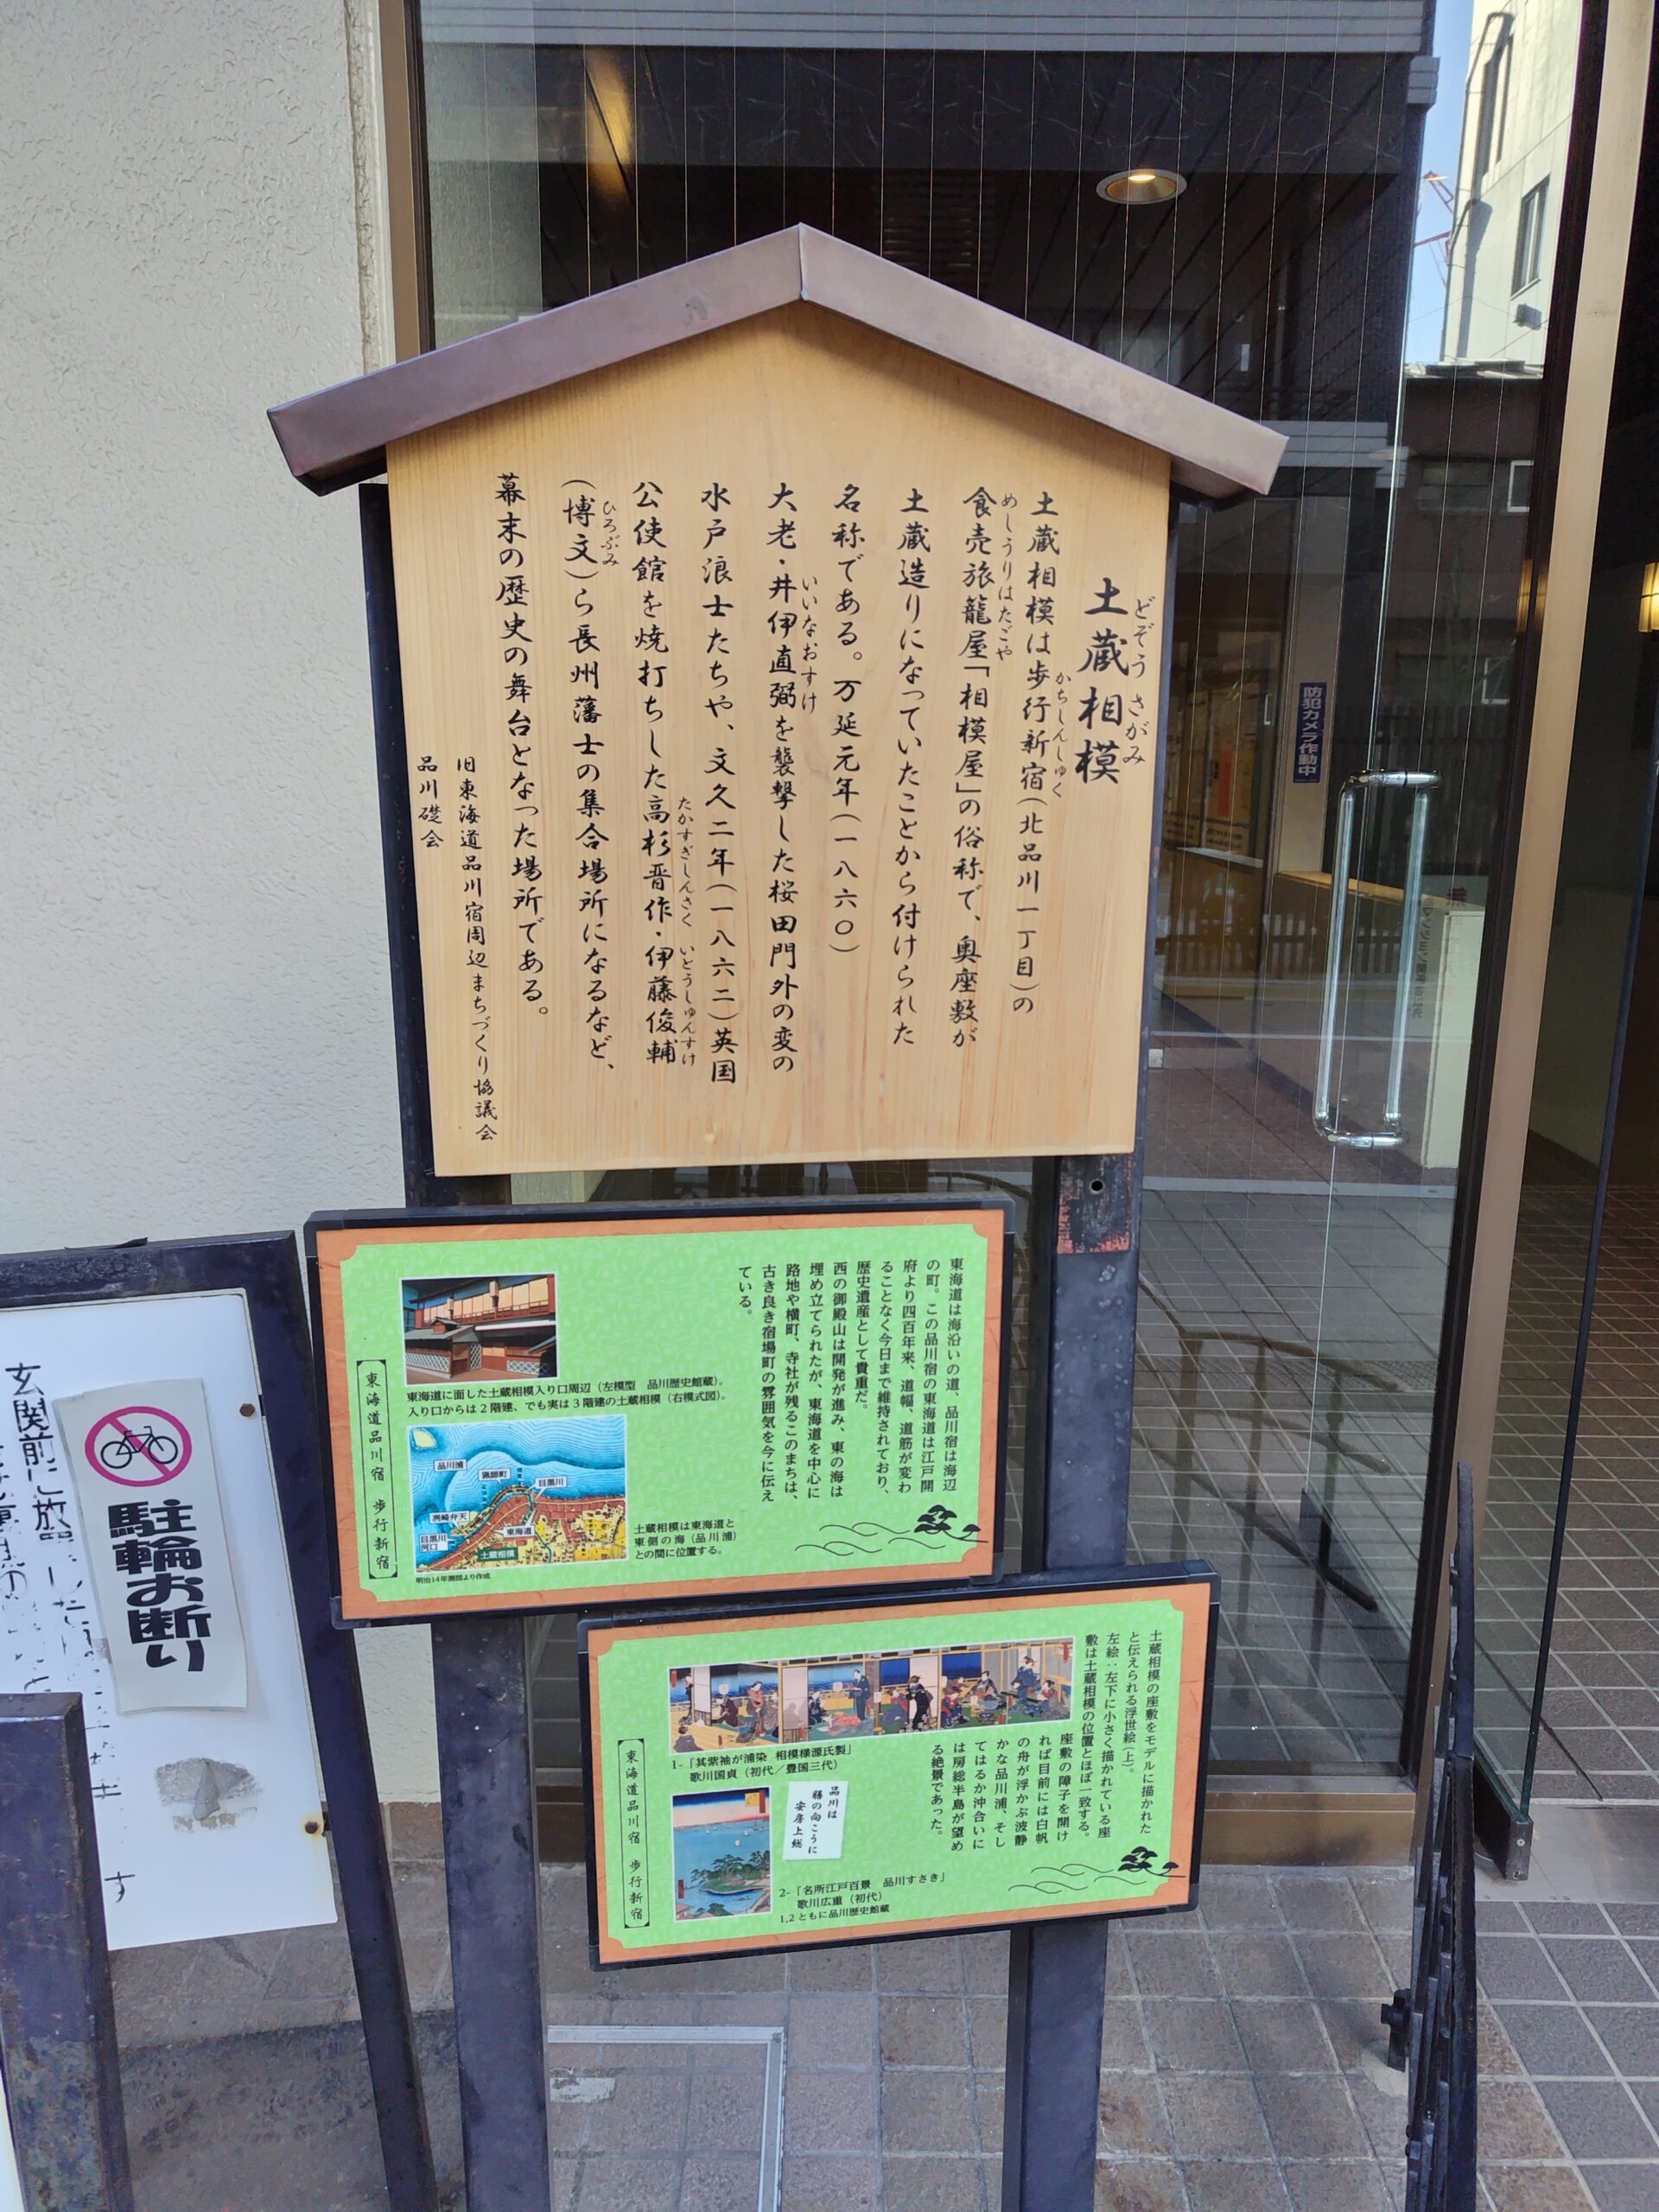 土蔵相模
どぞうさがみ
土蔵相模は歩行新宿(北品川一丁目)の
かちしんしゅく
食売旅籠屋「相模屋」の俗称で、奥座敷が
めしうりはたごや
土蔵造りになっていたことから付けられた
名称である。万延元年(一八六〇)
大老・井伊直弼を襲撃した桜田門外の変の
いいなおすけ
水戸浪士たちや、文久二年(一八六二)英国
公使館を焼打ちした高杉晋作・伊藤俊輔
たかすぎしんさく いとうしゅんすけ
(博文)ら長州藩士の集合場所になるなど、
ひろぶみ
幕末の歴史の舞台となった場所である。
旧東海道品川宿周辺まちづくり協議会
品川礎会
東海道は海沿いの道、品川宿は海辺
の町。この品川宿の東海道は江戸開
府より四百年来、道幅、道筋が変わ
ることなく今日まで維持されており、
歴史遺産として貴重だ。
西の御殿山は開発が進み、東の海は
埋め立てられたが、東海道を中心に
路地や横町、寺社が残るこのまちは、
古き良き宿場町の雰囲気を今に伝え
ている。
東海道に面した土蔵相模入り口周辺(左模型 品川歴史館蔵)。
入り口からは2階建、でも実は3階建の土蔵相模(右模式図)。
品川浦
猟師町
目黒川
洲崎弁天
東海道
目黒川
河口
土蔵相模
土蔵相模は東海道と
東側の海(品川浦)
との間に位置する。
明治14年測図より作成
東海道品川宿 歩行新宿
土蔵相模の座敷をモデルに描かれた
と伝えられる浮世絵(上)。
左絵:左下に小さく描かれている座
敷は土蔵相模の位置とほぼ一致する。
座敷の障子を開け
れば目前には白帆
の舟が浮かぶ波静
かな品川浦、そし
てはるか沖合いに
は房総半島が望め
る絶景であった。
1-「其紫袖が浦染 相模様源氏製」
歌川国貞(初代/豊国三代)
品川は
膳の向こうに
安房上総
2-「名所江戸百景 品川すさき」
歌川広重(初代)
1,2ともに品川歴史館蔵
東海道品川宿 歩行新宿
駐輪お断り
玄関前に放置
防犯カメラ作動中